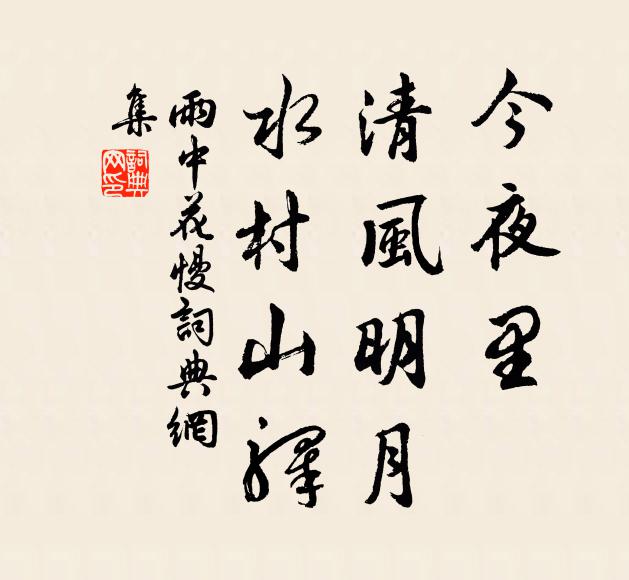 今夜里
清風明月
水村山驛
雨中花慢詞典網
集
詞典
网印